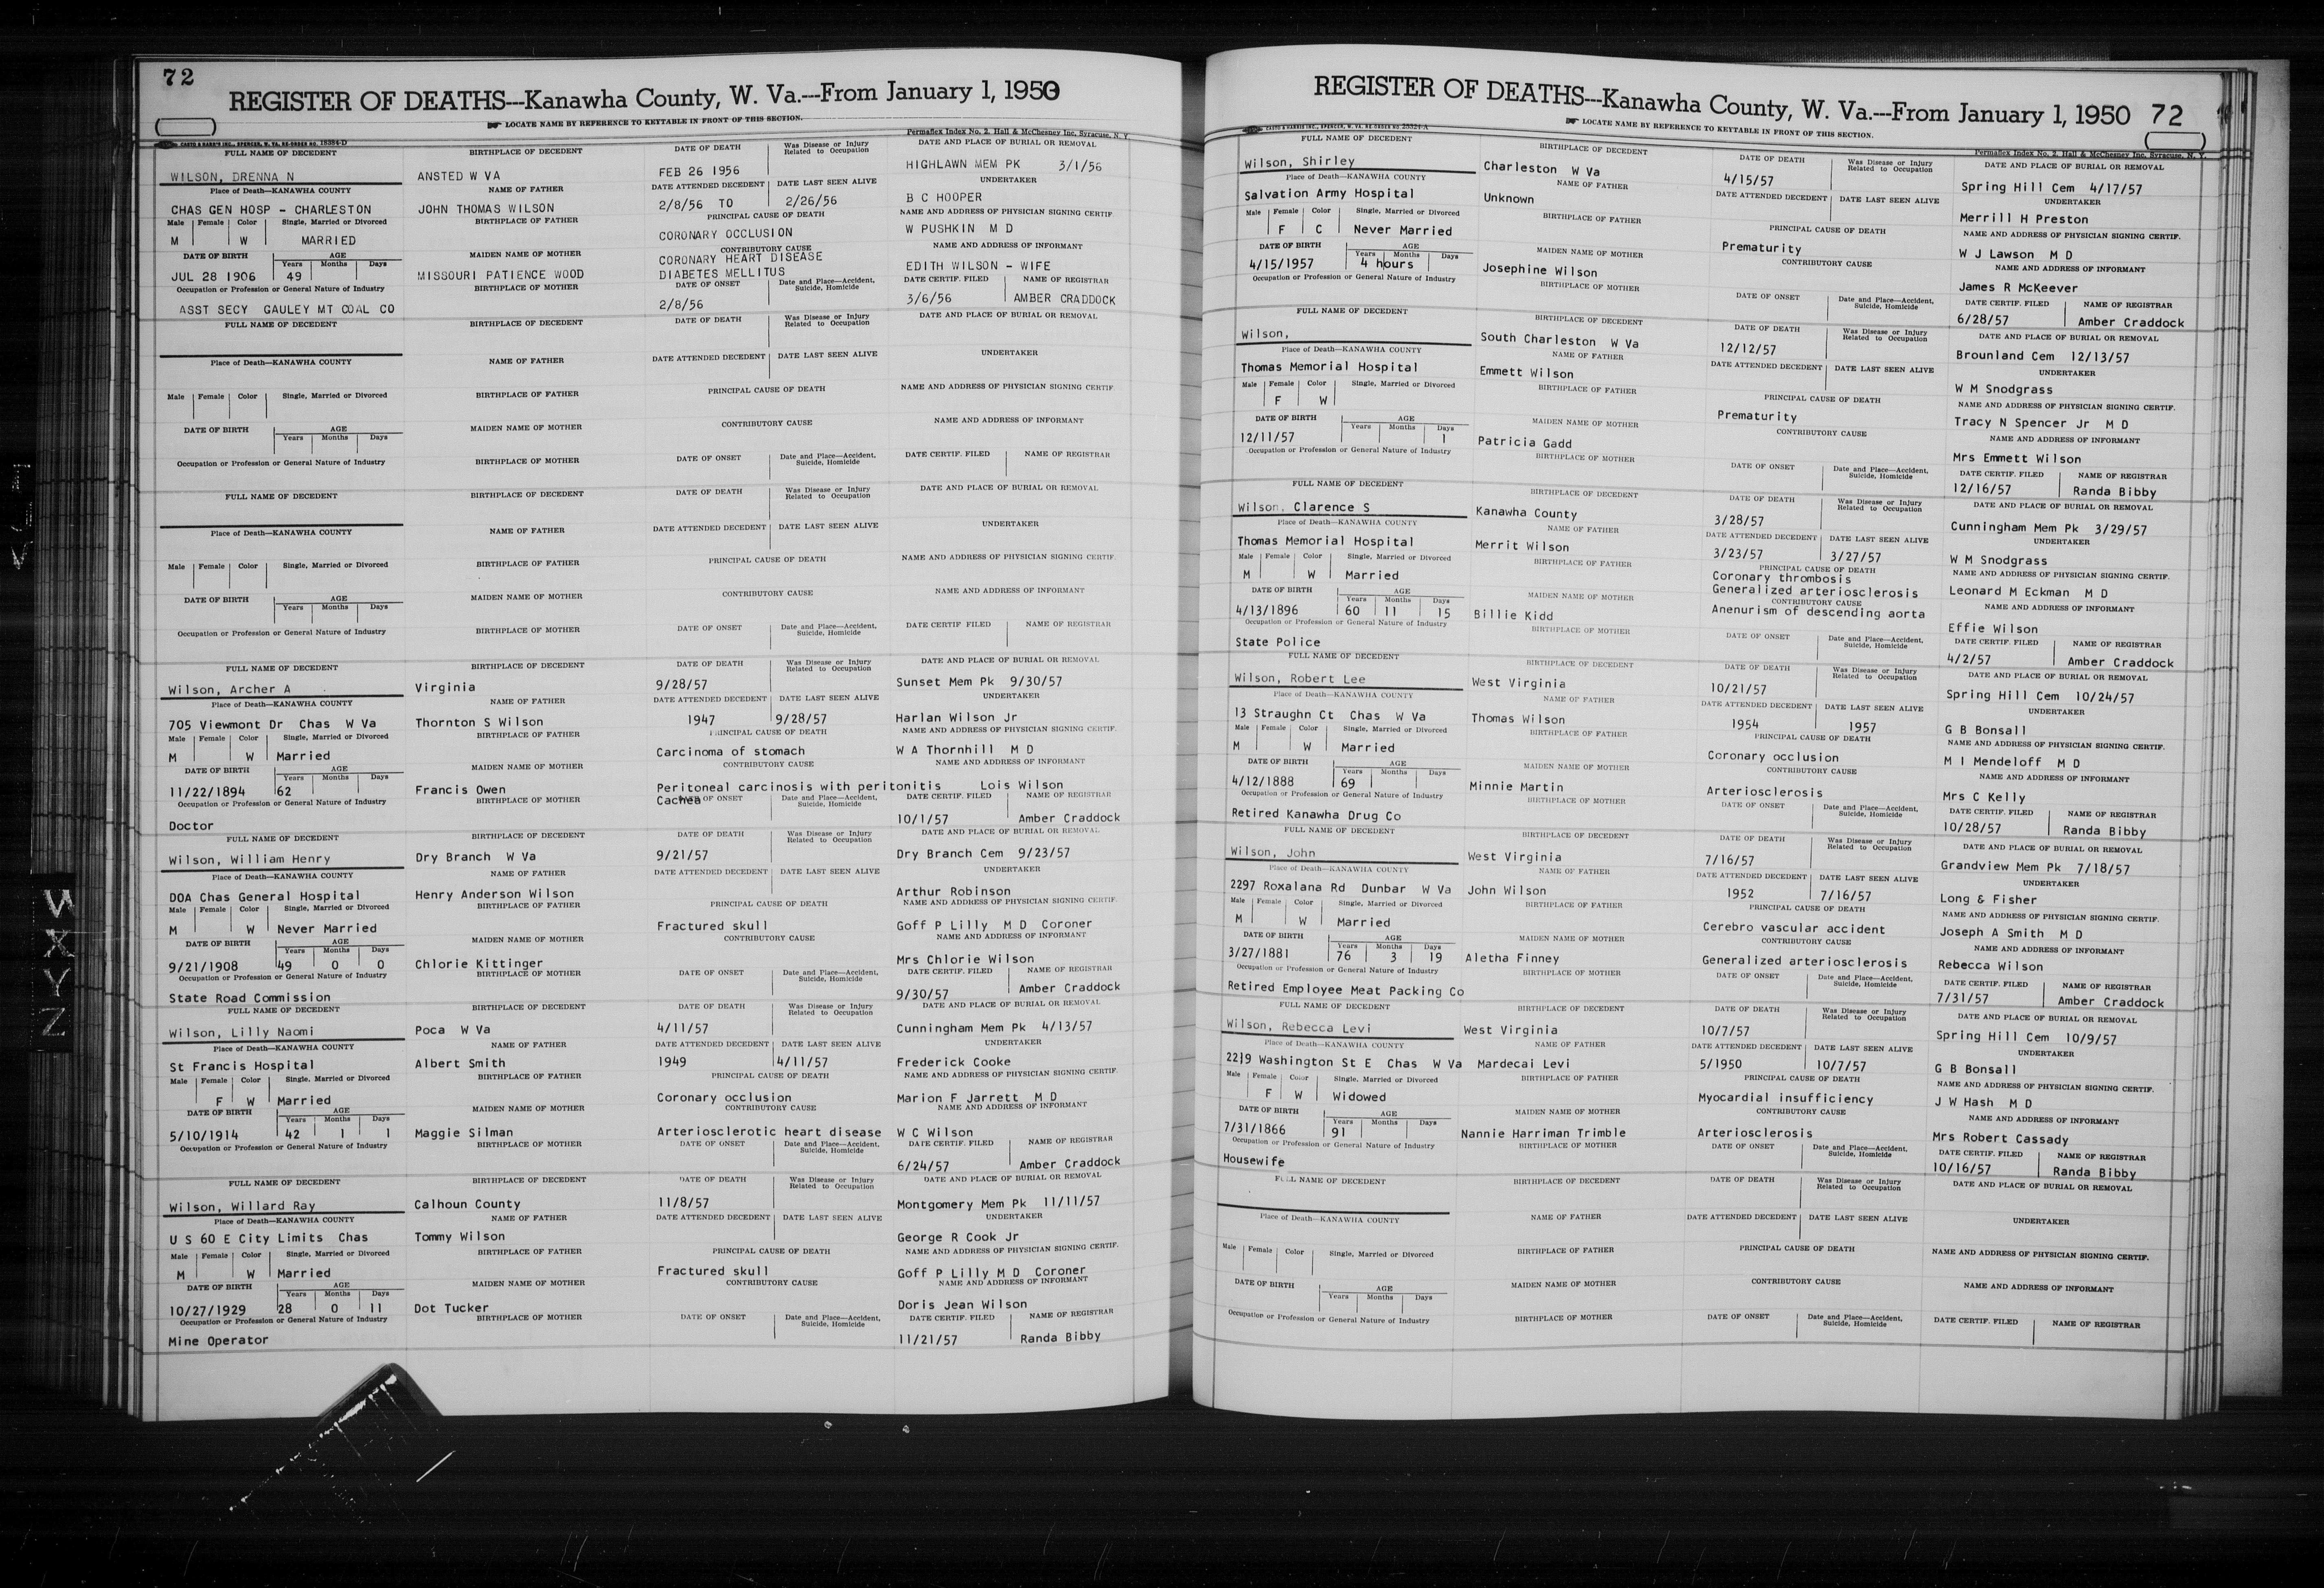 72
REGISTER OF DEATHS---Kanawha County, W. Va.---From January 1, 1950
LOCATE NAME BY REFERENCE TO KEYTABLE IN FRONT OF THIS SECTION.
CASTO & HARRIS INC., SPENCER, W. VA. RE-ORDER NO. 18384-D
Permaflex Index No. 2, Hall & McChesney Inc, Syracuse, N. Y.
FULL NAME OF DECEDENT BIRTHPLACE OF DECEDENT DATE OF DEATH Was Disease or Injury Related to Occupation DATE AND PLACE OF BURIAL OR REMOVAL
WILSON, DRENNA N ANSTED W VA FEB 26 1956 HIGHLAWN MEM PK 3/1/56
Place of Death—KANAWHA COUNTY NAME OF FATHER DATE ATTENDED DECEDENT DATE LAST SEEN ALIVE UNDERTAKER
CHAS GEN HOSP - CHARLESTON JOHN THOMAS WILSON 2/8/56 TO 2/26/56 B C HOOPER
Male Female Color Single, Married or Divorced BIRTHPLACE OF FATHER PRINCIPAL CAUSE OF DEATH NAME AND ADDRESS OF PHYSICIAN SIGNING CERTIF.
M W MARRIED CORONARY OCCLUSION W PUSHKIN M D
DATE OF BIRTH AGE Years Months Days MAIDEN NAME OF MOTHER CONTRIBUTORY CAUSE NAME AND ADDRESS OF INFORMANT
CORONARY HEART DISEASE
JUL 28 1906 49 MISSOURI PATIENCE WOOD DIABETES MELLITUS EDITH WILSON - WIFE
Occupation or Profession or General Nature of Industry BIRTHPLACE OF MOTHER DATE OF ONSET Date and Place—Accident, Suicide, Homicide DATE CERTIF. FILED NAME OF REGISTRAR
ASST SECY GAULEY MT COAL CO 2/8/56 3/6/56 AMBER CRADDOCK
FULL NAME OF DECEDENT BIRTHPLACE OF DECEDENT DATE OF DEATH Was Disease or Injury Related to Occupation DATE AND PLACE OF BURIAL OR REMOVAL
Place of Death—KANAWHA COUNTY NAME OF FATHER DATE ATTENDED DECEDENT DATE LAST SEEN ALIVE UNDERTAKER
Male Female Color Single, Married or Divorced BIRTHPLACE OF FATHER PRINCIPAL CAUSE OF DEATH NAME AND ADDRESS OF PHYSICIAN SIGNING CERTIF.
DATE OF BIRTH AGE Years Months Days MAIDEN NAME OF MOTHER CONTRIBUTORY CAUSE NAME AND ADDRESS OF INFORMANT
Occupation or Profession or General Nature of Industry BIRTHPLACE OF MOTHER DATE OF ONSET Date and Place—Accident, Suicide, Homicide DATE CERTIF. FILED NAME OF REGISTRAR
FULL NAME OF DECEDENT BIRTHPLACE OF DECEDENT DATE OF DEATH Was Disease or Injury Related to Occupation DATE AND PLACE OF BURIAL OR REMOVAL
Place of Death—KANAWHA COUNTY NAME OF FATHER DATE ATTENDED DECEDENT DATE LAST SEEN ALIVE UNDERTAKER
Male Female Color Single, Married or Divorced BIRTHPLACE OF FATHER PRINCIPAL CAUSE OF DEATH NAME AND ADDRESS OF PHYSICIAN SIGNING CERTIF.
DATE OF BIRTH AGE Years Months Days MAIDEN NAME OF MOTHER CONTRIBUTORY CAUSE NAME AND ADDRESS OF INFORMANT
Occupation or Profession or General Nature of Industry BIRTHPLACE OF MOTHER DATE OF ONSET Date and Place—Accident, Suicide, Homicide DATE CERTIF FILED NAME OF REGISTRAR
FULL NAME OF DECEDENT BIRTHPLACE OF DECEDENT DATE OF DEATH Was Disease or Injury Related to Occupation DATE AND PLACE OF BURIAL OR REMOVAL
Wilson, Archer A Virginia 9/28/57 Sunset Mem Pk 9/30/57
Place of Death—KANAWHA COUNTY NAME OF FATHER DATE ATTENDED DECEDENT DATE LAST SEEN ALIVE UNDERTAKER
705 Viewmont Dr Chas W Va Thornton S Wilson 1947 9/28/57 Harlan Wilson Jr
Male Female Color Single, Married or Divorced BIRTHPLACE OF FATHER PRINCIPAL CAUSE OF DEATH NAME AND ADDRESS OF PHYSICIAN SIGNING CERTIF.
M W Married Carcinoma of stomach W A Thornhill M D
DATE OF BIRTH AGE Years Months Days MAIDEN NAME OF MOTHER CONTRIBUTORY CAUSE NAME AND ADDRESS OF INFORMANT
11/22/1894 62 Francis Owen Peritoneal carcinosis with peritonitis Lois Wilson
Occupation or Profession or General Nature of Industry BIRTHPLACE OF MOTHER DATE OF ONSET Date and Place—Accident, Suicide, Homicide DATE CERTIF. FILED NAME OF REGISTRAR
Doctor 10/1/57 Amber Craddock
FULL NAME OF DECEDENT BIRTHPLACE OF DECEDENT DATE OF DEATH Was Disease or Injury Related to Occupation DATE AND PLACE OF BURIAL OR REMOVAL
Wilson, William Henry Dry Branch W Va 9/21/57 Dry Branch Cem 9/23/57
Place of Death—KANAWHA COUNTY NAME OF FATHER DATE ATTENDED DECEDENT DATE LAST SEEN ALIVE UNDERTAKER
DOA Chas General Hospital Henry Anderson Wilson Arthur Robinson
Male Female Color Single, Married or Divorced BIRTHPLACE OF FATHER PRINCIPAL CAUSE OF DEATH NAME AND ADDRESS OF PHYSICIAN SIGNING CERTIF.
M W Never Married Fractured skull Goff P Lilly M D Coroner
DATE OF BIRTH AGE Years Months Days MAIDEN NAME OF MOTHER CONTRIBUTORY CAUSE NAME AND ADDRESS OF INFORMANT
9/21/1908 49 0 0 Chlorie Kittinger Mrs Chlorie Wilson
Occupation or Profession or General Nature of Industry BIRTHPLACE OF MOTHER DATE OF ONSET Date and Place—Accident, Suicide, Homicide DATE CERTIF. FILED NAME OF REGISTRAR
State Road Commission 9/30/57 Amber Craddock
FULL NAME OF DECEDENT BIRTHPLACE OF DECEDENT DATE OF DEATH Was Disease or Injury Related to Occupation DATE AND PLACE OF BURIAL OR REMOVAL
Wilson, Lilly Naomi Poca W Va 4/11/57 Cunningham Mem Pk 4/13/57
Place of Death—KANAWHA COUNTY NAME OF FATHER DATE ATTENDED DECEDENT DATE LAST SEEN ALIVE UNDERTAKER
St Francis Hospital Albert Smith 1949 4/11/57 Frederick Cooke
Male Female Color Single, Married or Divorced BIRTHPLACE OF FATHER PRINCIPAL CAUSE OF DEATH NAME AND ADDRESS OF PHYSICIAN SIGNING CERTIF.
F W Married Coronary occlusion Marion F Jarrett M D
DATE OF BIRTH AGE Years Months Days MAIDEN NAME OF MOTHER CONTRIBUTORY CAUSE NAME AND ADDRESS OF INFORMANT
5/10/1914 42 1 1 Maggie Silman Arteriosclerotic heart disease W C Wilson
Occupation or Profession or General Nature of Industry BIRTHPLACE OF MOTHER DATE OF ONSET Date and Place—Accident, Suicide, Homicide DATE CERTIF. FILED NAME OF REGISTRAR
6/24/57 Amber Craddock
FULL NAME OF DECEDENT BIRTHPLACE OF DECEDENT DATE OF DEATH Was Disease or Injury Related to Occupation DATE AND PLACE OF BURIAL OR REMOVAL
Wilson, Willard Ray Calhoun County 11/8/57 Montgomery Mem Pk 11/11/57
Place of Death—KANAWHA COUNTY NAME OF FATHER DATE ATTENDED DECEDENT DATE LAST SEEN ALIVE UNDERTAKER
U S 60 E City Limits Chas Tommy Wilson George R Cook Jr
Male Female Color Single, Married or Divorced BIRTHPLACE OF FATHER PRINCIPAL CAUSE OF DEATH NAME AND ADDRESS OF PHYSICIAN SIGNING CERTIF.
M W Married Fractured skull Goff P Lilly M D Coroner
DATE OF BIRTH AGE Years Months Days MAIDEN NAME OF MOTHER CONTRIBUTORY CAUSE NAME AND ADDRESS OF INFORMANT
10/27/1929 28 0 11 Dot Tucker Doris Jean Wilson
Occupation or Profession or General Nature of Industry BIRTHPLACE OF MOTHER DATE OF ONSET Date and Place—Accident, Suicide, Homicide DATE CERTIF. FILED NAME OF REGISTRAR
Mine Operator 11/21/57 Randa Bibby
W
X
Y
Z
REGISTER OF DEATHS---Kanawha County, W. Va.---From January 1, 1950 72
LOCATE NAME BY REFERENCE TO KEYTABLE IN FRONT OF THIS SECTION.
CASTO & HARRIS INC., SPENCER, W. VA. RE-ORDER NO. 25324-A
Permaflex Index No. 2, Hall & McChesney Inc, Syracuse, N. Y.
FULL NAME OF DECEDENT BIRTHPLACE OF DECEDENT DATE OF DEATH Was Disease or Injury Related to Occupation DATE AND PLACE OF BURIAL OR REMOVAL
Wilson, Shirley Charleston W Va 4/15/57 Spring Hill Cem 4/17/57
Place of Death—KANAWHA COUNTY NAME OF FATHER DATE ATTENDED DECEDENT DATE LAST SEEN ALIVE UNDERTAKER
Salvation Army Hospital Unknown Merrill H Preston
Male Female Color Single, Married or Divorced BIRTHPLACE OF FATHER PRINCIPAL CAUSE OF DEATH NAME AND ADDRESS OF PHYSICIAN SIGNING CERTIF.
F C Never Married Prematurity W J Lawson M D
DATE OF BIRTH AGE Years Months Days MAIDEN NAME OF MOTHER CONTRIBUTORY CAUSE NAME AND ADDRESS OF INFORMANT
4/15/1957 4 hours Josephine Wilson James R McKeever
Occupation or Profession or General Nature of Industry BIRTHPLACE OF MOTHER DATE OF ONSET Date and Place—Accident, Suicide, Homicide DATE CERTIF. FILED NAME OF REGISTRAR
6/28/57 Amber Craddock
FULL NAME OF DECEDENT BIRTHPLACE OF DECEDENT DATE OF DEATH Was Disease or Injury Related to Occupation DATE AND PLACE OF BURIAL OR REMOVAL
Wilson, South Charleston W Va 12/12/57 Brounland Cem 12/13/57
Place of Death—KANAWHA COUNTY NAME OF FATHER DATE ATTENDED DECEDENT DATE LAST SEEN ALIVE UNDERTAKER
Thomas Memorial Hospital Emmett Wilson W M Snodgrass
Male Female Color Single, Married or Divorced BIRTHPLACE OF FATHER PRINCIPAL CAUSE OF DEATH NAME AND ADDRESS OF PHYSICIAN SIGNING CERTIF.
F W Prematurity Tracy N Spencer Jr M D
DATE OF BIRTH AGE Years Months Days MAIDEN NAME OF MOTHER CONTRIBUTORY CAUSE NAME AND ADDRESS OF INFORMANT
12/11/57 1 Patricia Gadd Mrs Emmett Wilson
Occupation or Profession or General Nature of Industry BIRTHPLACE OF MOTHER DATE OF ONSET Date and Place—Accident, Suicide, Homicide DATE CERTIF. FILED NAME OF REGISTRAR
12/16/57 Randa Bibby
FULL NAME OF DECEDENT BIRTHPLACE OF DECEDENT DATE OF DEATH Was Disease or Injury Related to Occupation DATE AND PLACE OF BURIAL OR REMOVAL
Wilson, Clarence S Kanawha County 3/28/57 Cunningham Mem Pk 3/29/57
Place of Death—KANAWHA COUNTY NAME OF FATHER DATE ATTENDED DECEDENT DATE LAST SEEN ALIVE UNDERTAKER
Thomas Memorial Hospital Merrit Wilson 3/23/57 3/27/57 W M Snodgrass
Male Female Color Single, Married or Divorced BIRTHPLACE OF FATHER PRINCIPAL CAUSE OF DEATH NAME AND ADDRESS OF PHYSICIAN SIGNING CERTIF.
M W Married Coronary thrombosis
Generalized arteriosclerosis Leonard M Eckman M D
DATE OF BIRTH AGE Years Months Days MAIDEN NAME OF MOTHER CONTRIBUTORY CAUSE NAME AND ADDRESS OF INFORMANT
4/13/1896 60 11 15 Billie Kidd Anenurism of descending aorta Effie Wilson
Occupation or Profession or General Nature of Industry BIRTHPLACE OF MOTHER DATE OF ONSET Date and Place—Accident, Suicide, Homicide DATE CERTIF. FILED NAME OF REGISTRAR
State Police 4/2/57 Amber Craddock
FULL NAME OF DECEDENT BIRTHPLACE OF DECEDENT DATE OF DEATH Was Disease or Injury Related to Occupation DATE AND PLACE OF BURIAL OR REMOVAL
Wilson, Robert Lee West Virginia 10/21/57 Spring Hill Cem 10/24/57
Place of Death—KANAWHA COUNTY NAME OF FATHER DATE ATTENDED DECEDENT DATE LAST SEEN ALIVE UNDERTAKER
13 Straughn Ct Chas W Va Thomas Wilson 1954 1957 G B Bonsall
Male Female Color Single, Married or Divorced BIRTHPLACE OF FATHER PRINCIPAL CAUSE OF DEATH NAME AND ADDRESS OF PHYSICIAN SIGNING CERTIF.
M W Married Coronary occlusion M I Mendeloff M D
DATE OF BIRTH AGE Years Months Days MAIDEN NAME OF MOTHER CONTRIBUTORY CAUSE NAME AND ADDRESS OF INFORMANT
4/12/1888 69 Minnie Martin Arteriosclerosis Mrs C Kelly
Occupation or Profession or General Nature of Industry BIRTHPLACE OF MOTHER DATE OF ONSET Date and Place—Accident, Suicide, Homicide DATE CERTIF. FILED NAME OF REGISTRAR
Retired Kanawha Drug Co 10/28/57 Randa Bibby
FULL NAME OF DECEDENT BIRTHPLACE OF DECEDENT DATE OF DEATH Was Disease or Injury Related to Occupation DATE AND PLACE OF BURIAL OR REMOVAL
Wilson, John West Virginia 7/16/57 Grandview Mem Pk 7/18/57
Place of Death—KANAWHA COUNTY NAME OF FATHER DATE ATTENDED DECEDENT DATE LAST SEEN ALIVE UNDERTAKER
2297 Roxalana Rd Dunbar W Va John Wilson 1952 7/16/57 Long & Fisher
Male Female Color Single, Married or Divorced BIRTHPLACE OF FATHER PRINCIPAL CAUSE OF DEATH NAME AND ADDRESS OF PHYSICIAN SIGNING CERTIF.
M W Married Cerebro vascular accident Joseph A Smith M D
DATE OF BIRTH AGE Years Months Days MAIDEN NAME OF MOTHER CONTRIBUTORY CAUSE NAME AND ADDRESS OF INFORMANT
3/27/1881 76 3 19 Aletha Finney Generalized arteriosclerosis Rebecca Wilson
Occupation or Profession or General Nature of Industry BIRTHPLACE OF MOTHER DATE OF ONSET Date and Place—Accident, Suicide, Homicide DATE CERTIF. FILED NAME OF REGISTRAR
Retired Employee Meat Packing Co 7/31/57 Amber Craddock
FULL NAME OF DECEDENT BIRTHPLACE OF DECEDENT DATE OF DEATH Was Disease or Injury Related to Occupation DATE AND PLACE OF BURIAL OR REMOVAL
Wilson, Rebecca Levi West Virginia 10/7/57 Spring Hill Cem 10/9/57
Place of Death—KANAWHA COUNTY NAME OF FATHER DATE ATTENDED DECEDENT DATE LAST SEEN ALIVE UNDERTAKER
2219 Washington St E Chas W Va Mardecai Levi 5/1950 10/7/57 G B Bonsall
Male Female Color Single, Married or Divorced BIRTHPLACE OF FATHER PRINCIPAL CAUSE OF DEATH NAME AND ADDRESS OF PHYSICIAN SIGNING CERTIF.
F W Widowed Myocardial insufficiency J W Hash M D
DATE OF BIRTH AGE Years Months Days MAIDEN NAME OF MOTHER CONTRIBUTORY CAUSE NAME AND ADDRESS OF INFORMANT
7/31/1866 91 Nannie Harriman Trimble Arteriosclerosis Mrs Robert Cassady
Occupation or Profession or General Nature of Industry BIRTHPLACE OF MOTHER DATE OF ONSET Date and Place—Accident, Suicide, Homicide DATE CERTIF. FILED NAME OF REGISTRAR
Housewife 10/16/57 Randa Bibby
FULL NAME OF DECEDENT BIRTHPLACE OF DECEDENT DATE OF DEATH Was Disease or Injury Related to Occupation DATE AND PLACE OF BURIAL OR REMOVAL
Place of Death—KANAWHA COUNTY NAME OF FATHER DATE ATTENDED DECEDENT DATE LAST SEEN ALIVE UNDERTAKER
Male Female Color Single, Married or Divorced BIRTHPLACE OF FATHER PRINCIPAL CAUSE OF DEATH NAME AND ADDRESS OF PHYSICIAN SIGNING CERTIF.
DATE OF BIRTH AGE Years Months Days MAIDEN NAME OF MOTHER CONTRIBUTORY CAUSE NAME AND ADDRESS OF INFORMANT
Occupation or Profession or General Nature of Industry BIRTHPLACE OF MOTHER DATE OF ONSET Date and Place—Accident, Suicide, Homicide DATE CERTIF. FILED NAME OF REGISTRAR